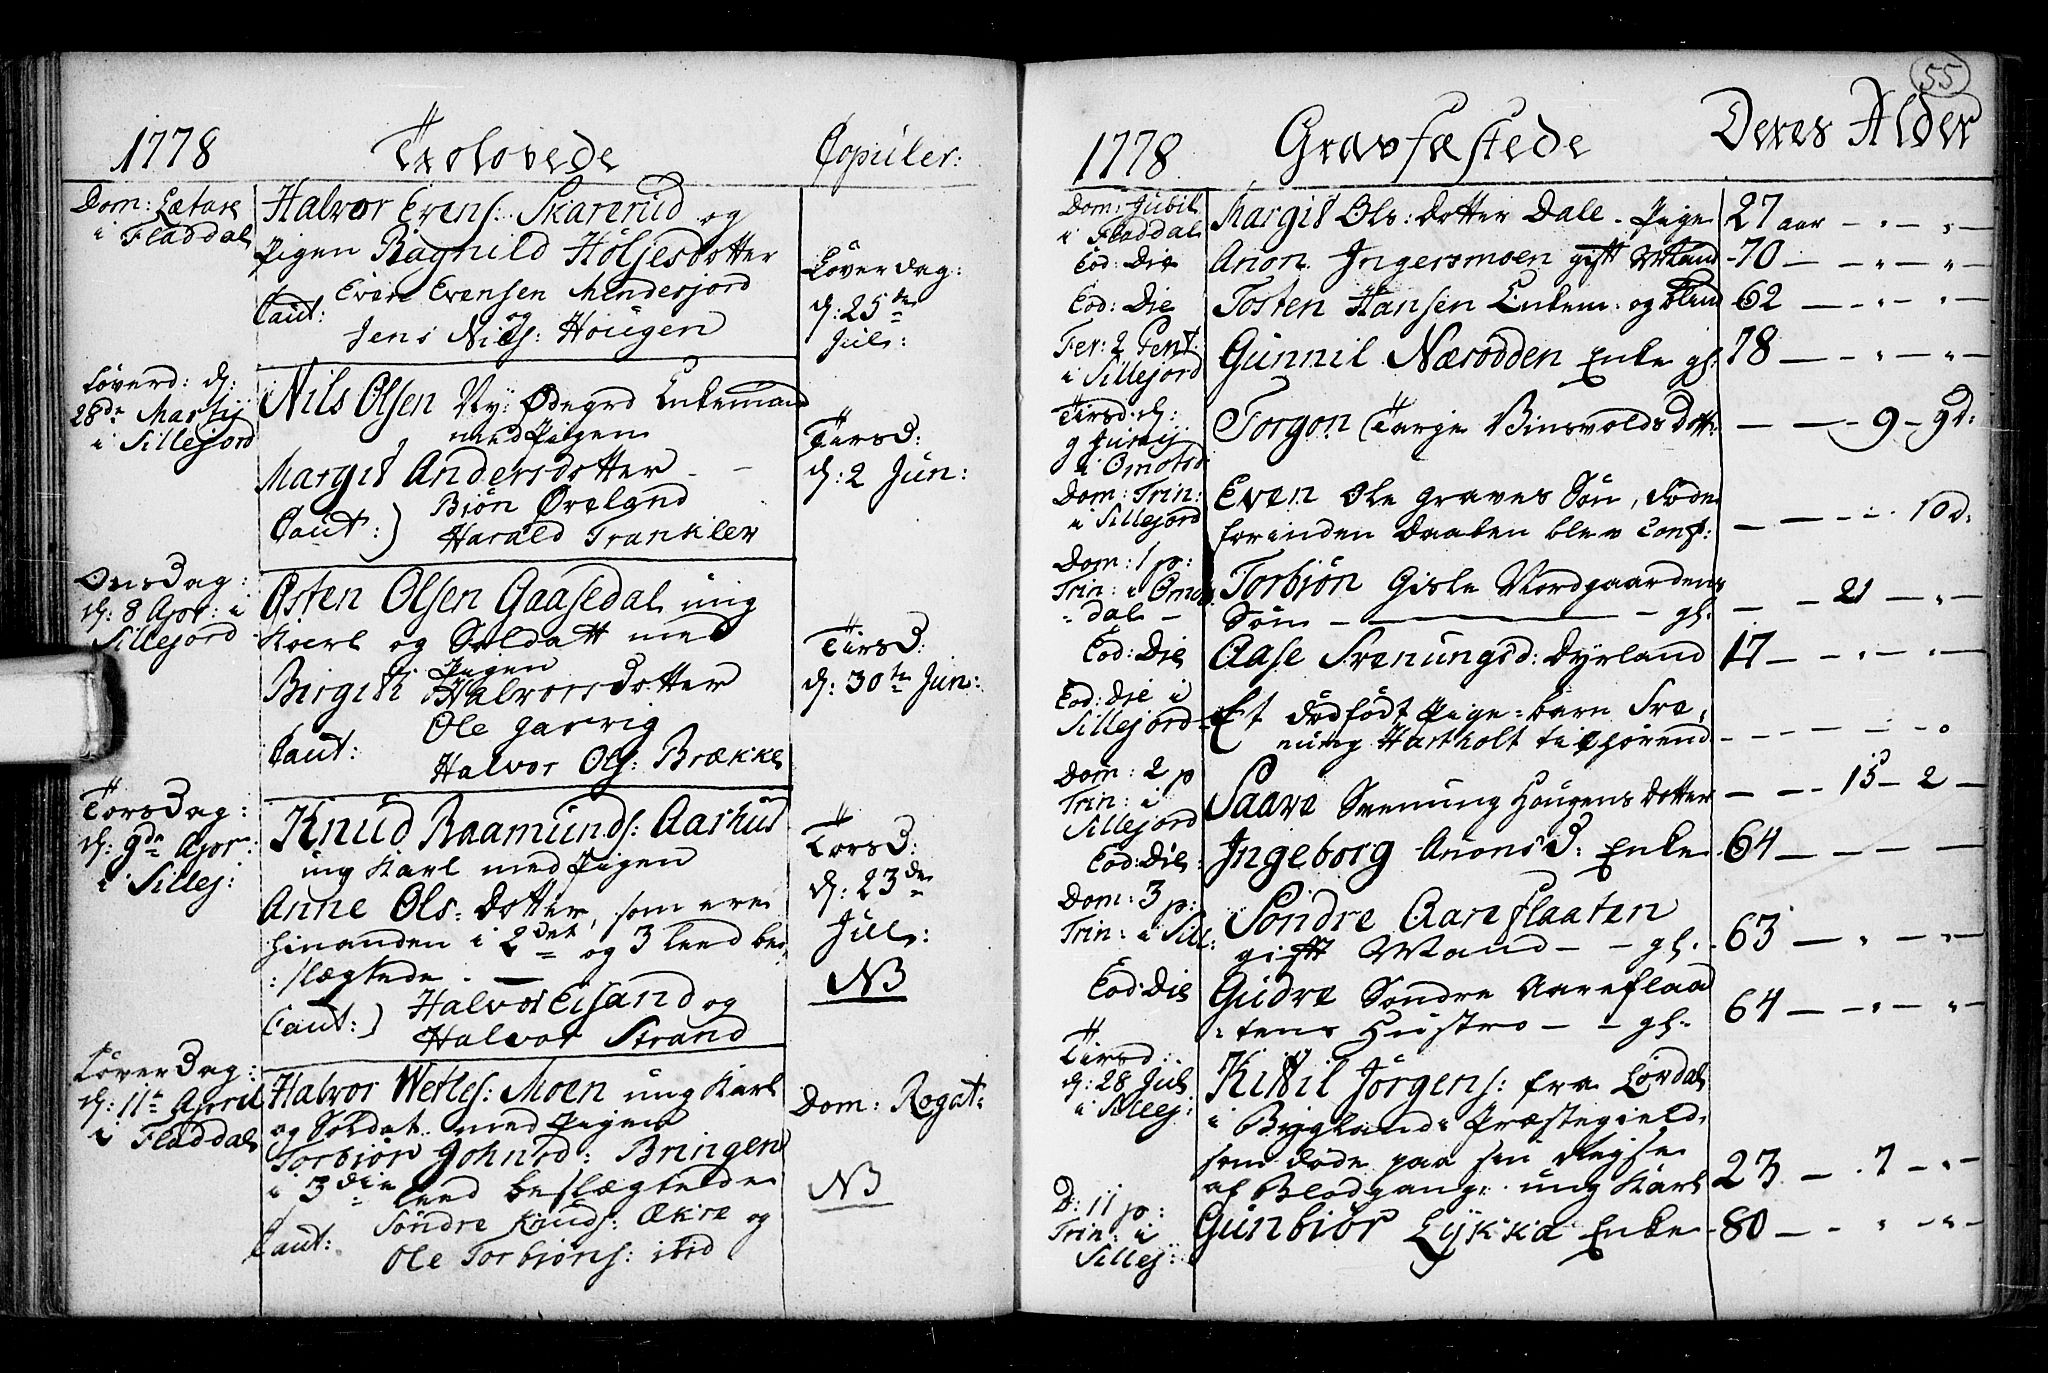 1778 Trolovede Copuler:
Dom: Lætare
i Fladdal
Halvor Evens: Skarerud og
Pigen Ragnild Höljesdotter
Caut: Even Evensen Mindesjord
og
Jens Niels: Hougen
Löverdag:
d: 25de
Jul:
Löverd: d:
28de Martij
i Sillejord
Nils Olsen Ny: Ödegrd Enkemand
med Pigen
Margit Andersdotter
Caut:) Biön Öreland
Harald Trankler
Tirsd:
d: 2 Jun:
Onsdag:
d: 8 Apr: i
Sillejord
Østen Olsen Gaasedal ung
Karl og Soldatt med
Pigen
Birgitt Halvorsdotter
Caut: Ole garvig
Halvor Ols: Brække
Tirsd:
d: 30te Jun:
Torsdag:
d: 9de Apr:
i Sillej:
Knud Raamunds: Aarhus
ung Karl med Pigen
Anne Ols: dotter, som ere
hinanden i 2det og 3 leed be:
:slægtede
Caut:) Halvor Eisand og
Halvor Strand
Torsd:
d: 23de
Jul:
NB
Löverdag:
d: 11te April
i Fladdal
Halvor Wetles: Moen ung Karl
og Soldat med Pigen
Torbiör Johnsd: Bringen
i 3die leed beslægtede
Caut: Söndre Knuds: Ækre og
Ole Torbiöns: ibid
Dom: Rogat:
NB
55
1778 Gravfæstede Deres Alder
Dom: Jubil
i Fladdal
Margit Ols: dotter Dale - Pige 27 aar
Eod: Die Anon Ingersmoen gift Mand 70
Eod: Die Tosten Hansen Enkem: og blind 62
Fer: 2 Pent:
i Sillejord
Gunnil Næsodden Enke gl: 78
Tirsd: d:
9 Junij
i Omotsd
Torgon Tarje Binsvolds dott: 9 - 9 d:
Dom: Trin:
i Sillejord
Even Ole Graves Sön, döde
forinden Daaben blev Conf: 10 d:
Dom: 1 p:
Trin: i Omots
dal
Torbiön Gisle Nordgaardens
Sön - gl: 21
Eod: Die Aase Svenungsd: Dyrland 17
Eod: Die i
Sillejord
Et dödfödt Pige-barn Sve,
nung Hartholt tilhörend
Dom: 2 p
Trin: i
Sillejord
Saave Svenung Hougens dotter 15 - 2
Eod: Die: Ingeborg Anonsd: Enke 64
Dom: 3 p:
Trin: i Sill:
Söndre Aareflaaten
gift Mand - gl. 63
Eod: Die Gudre Söndre Aareflaa
:tens Hustro - gl. 64
Tirsd:
d: 28 Jul
i Sillej:
Kittil Jörgens: fra Lördal
i Bygland: Præstegield:
som döde paa sin Reyse
af Blodgang: ung Karl 23 - 7
D: 11 p:
Trin: i
Sillej:
Gunbiör Lykka Enke 80